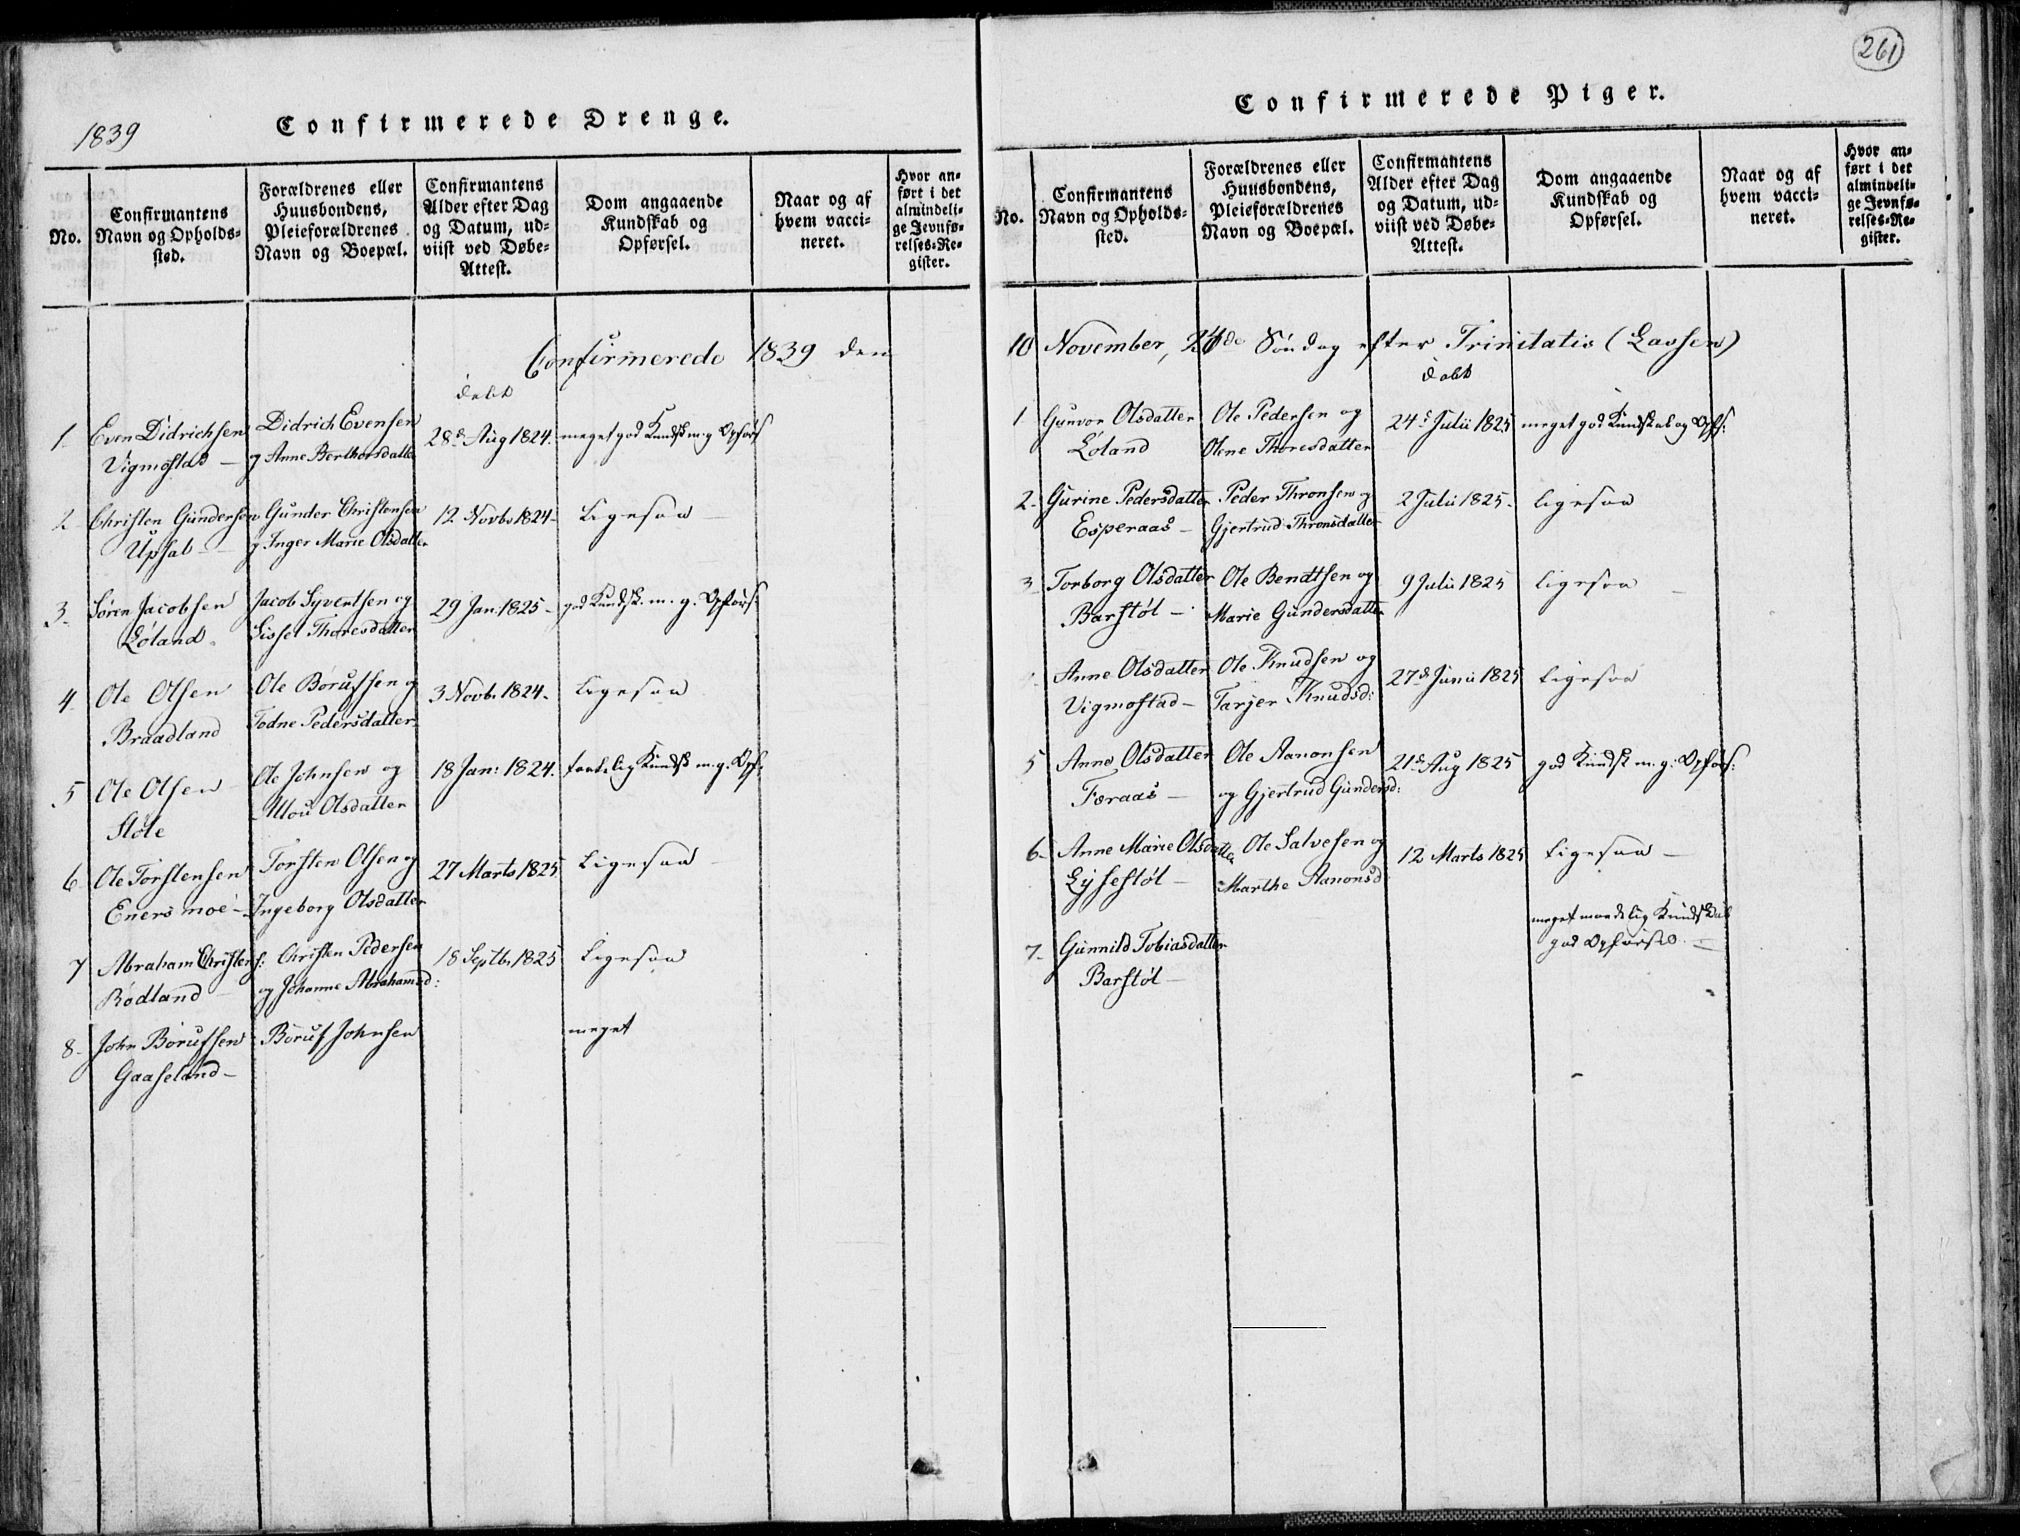 261
1839
Confirmerede Drenge.
No.
Confirmantens
Navn og Opholds-
sted.
Forældrenes eller
Huusbondens,
Pleieforældrenes
Navn og Boepæl.
Confirmantens
Alder efter Dag
og Datum, ud-
viist ved Døbe-
Attest.
Dom angaaende
Kundskab og
Opførsel.
Naar og af
hvem vacci-
neret.
Hvor an-
ført i det
almindeli-
ge Jevnfø-
relses-Re-
gister.
Confirmerede 1839 den
døbt
1. Even Didrichsen Didrich Evensen 28de Aug 1824. meget god Kundsk m. g Opførs
Vigmostad — og Anne Berthorsdatter
2 Christen Gundersen Gunder Christensen 12 Novbr 1824 – Ligesaa —
Upsal — og Inger Marie Olsdatter
3. Søren Jacobsen Jacob Syvertsen og 29 Jan. 1825 – god Kundsk. m. g. Opførs:
Løland. Lisset Thoresdatter
4. Ole Olsen Ole Børufsen og 3 Novb. 1824. Ligesaa
Braadland Todne Pedersdatter
5 Ole Olsen Ole Johnsen og 18 Jan: 1824. taalelig Kundsk m. g. Opf:
Støle Olsdatter
6. Ole Torstensen Torsten Olsen og 27 Marts 1825 Ligesaa —
Eners moe – Ingeborg Olsdatter
7 Abraham Christens: Christen Pedersen 18 Septbr. 1825 Ligesaa
Rødland — og Johanne Abrahamsd:
8. John Børufsen Børuf Johnsen meget
Gaaseland –
Confirmerede Piger.
No.
Confirmantens
Navn og Opholds-
sted.
Forældrenes eller
Huusbondens,
Pleieforældrenes
Navn og Boepæl.
Confirmantens
Alder efter Dag
og Datum, ud-
viist ved Døbe-
Attest.
Dom angaaende
Kundskab og
Opførsel.
Naar og af
hvem vacci-
neret.
Hvor an-
ført i det
almindeli-
ge Jevnfø-
relses-Re-
gister.
10 November, 24de Søndag efter Trinitatis (Lassen)
døbt
1 Gunvor Olsdatter Ole Pedersen og 24de Julii 1825 meget god Kundskab og Opfs:
Løland Olene Thoresdatter
2. Gurine Pedersdatter Peder Thronsen og 2 Julii 1825. ligesaa
Esperaas — Gjertrud Thronsdatter
3. Torborg Olsdatter Ole Bendtsen og 9 Julii 1825 ligesaa
Barstøl — Marie Gundersdatter
Anne Olsdatter Ole Knudsen og 27de Junii 1825 Ligesaa
Vigmostad — Tarjer Knudsd:
5 Anne Olsdatter Ole Aanonsen 21de Aug 1825 god Kundsk m. g: Opførs:
Foraas — og Gjertrud Gundersd:
6. Anne Marie Olsdatter Ole Salvesen og 12 Marts 1825 Ligesaa —
Lysestøl — Marthe Aanonsd
meget maadelig Kundskab
7. Gunnild Tobiasdatter god Opførsel. —
Barstøl —